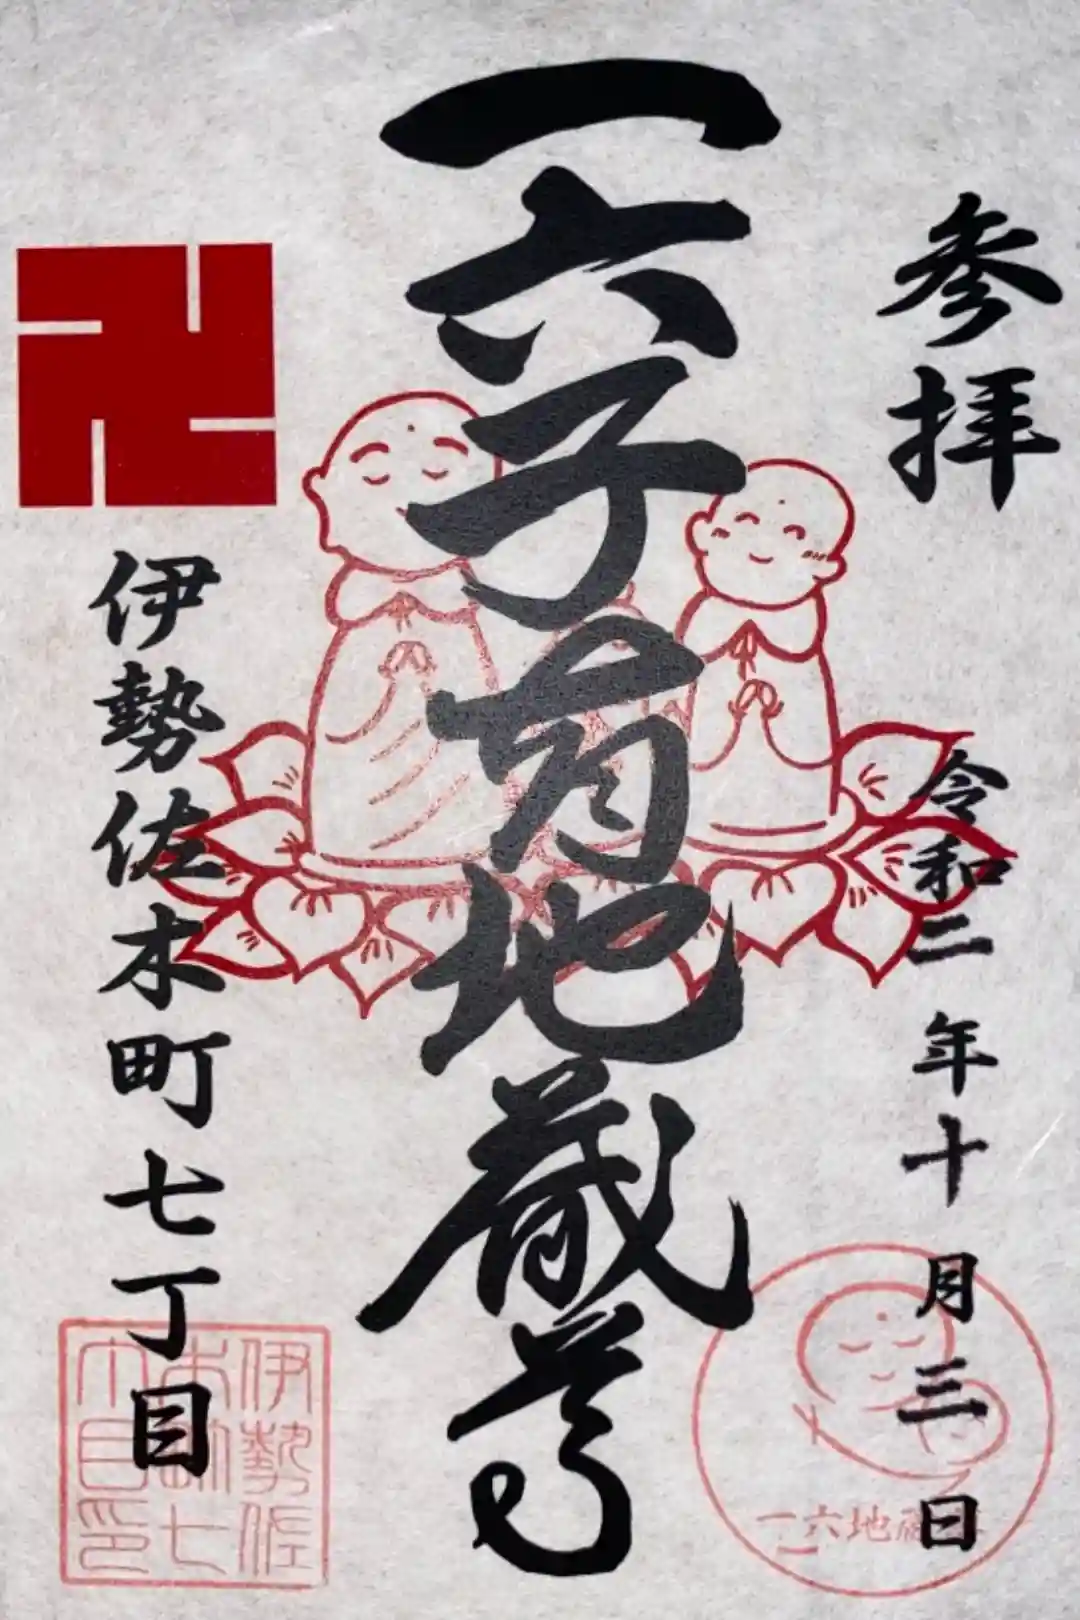 参拝
令和二年十月三日
一六子育地蔵尊
伊勢佐木町七丁目
伊勢佐木町七丁目印
一六地蔵尊